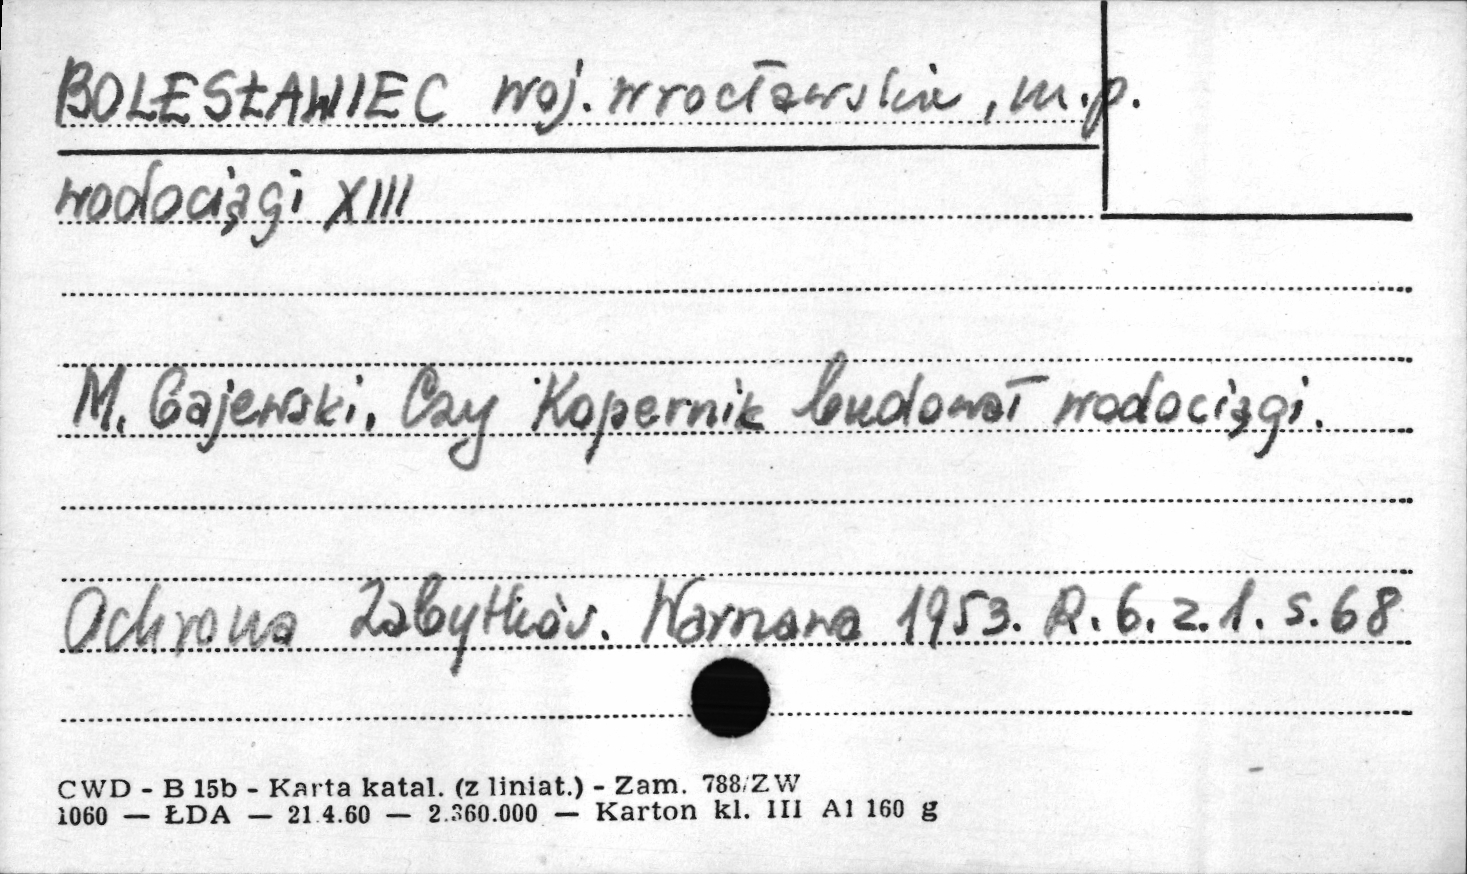 BOLESŁAWIEC woj. wrocławskie, m.p.
wodociągi XIII
M. Gajewski, Czy Kopernik budował wodociągi.
Ochrona Zabytków. Warszawa 1953. R. 6. z. 1. s. 68
CWD - B 15b - Karta katal. (z liniat.) - Zam. 788/ZW
1060 — ŁDA — 21.4.60 — 2.360.000 — Karton kl. III A1 160 g